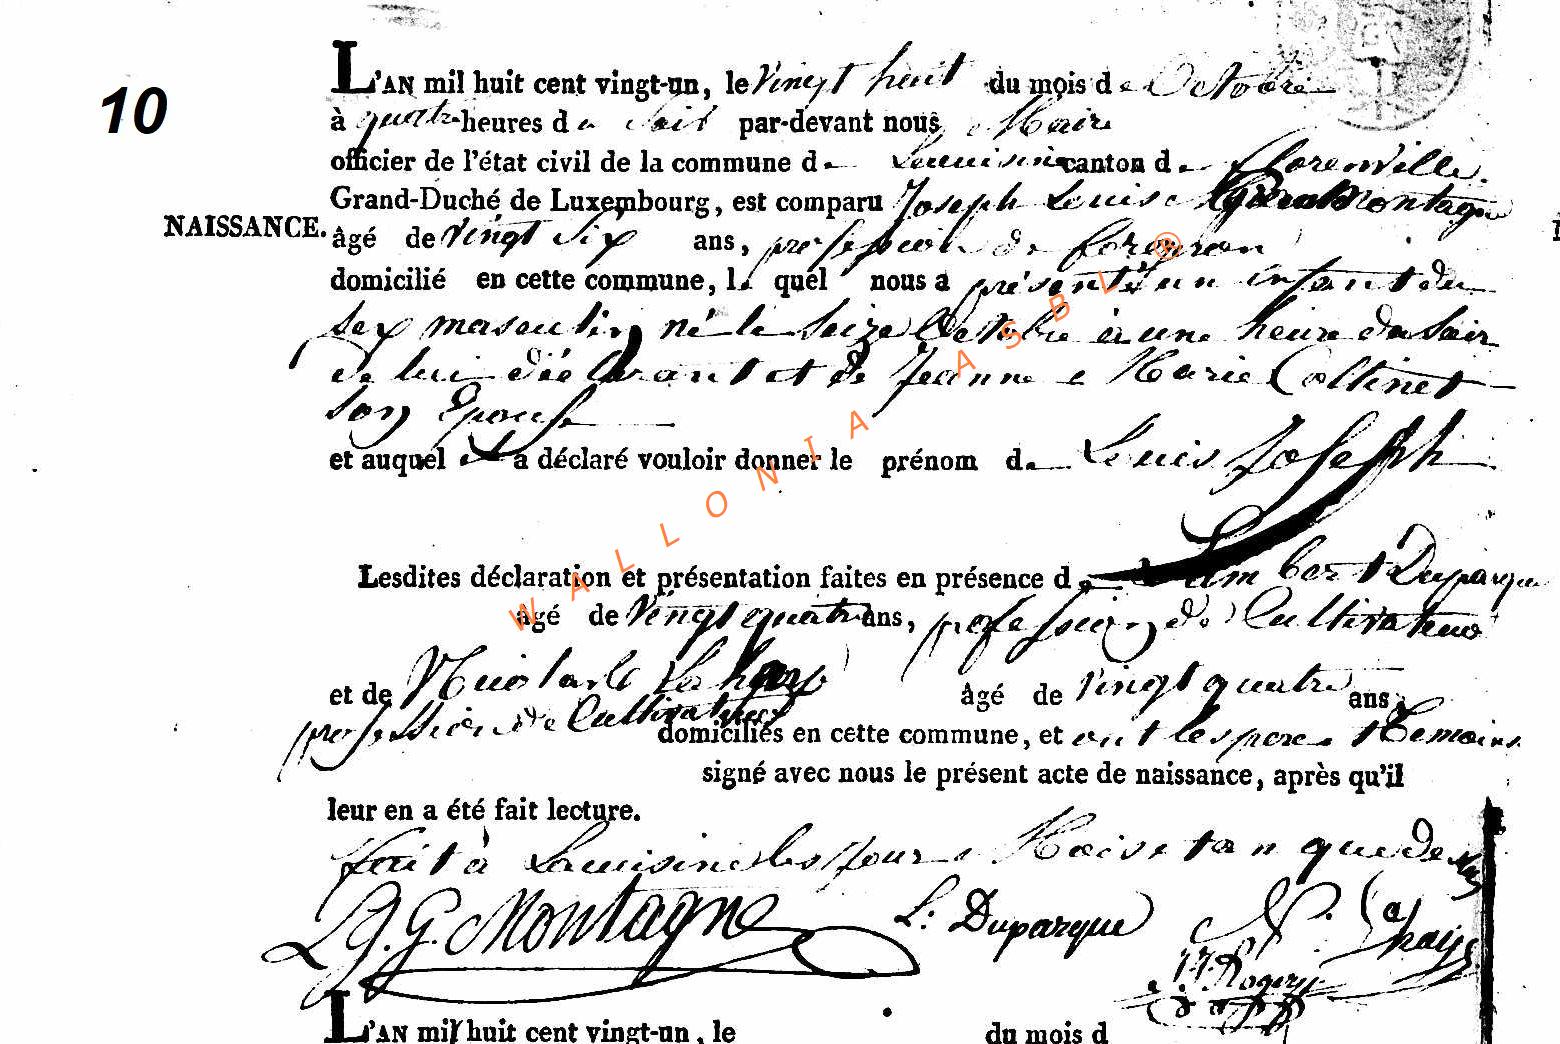 10
L'AN mil huit cent vingt-un, le Vingt huit du mois de Octobre
à quatre heures de Soir par-devant nous Maire
officier de l'état civil de la commune de Lacuisine canton de florenville.
Grand-Duché de Luxembourg, est comparu Joseph Louis Montagne
NAISSANCE.
âgé de Vingt Six ans, profession de forgeron
domicilié en cette commune, le quel nous a présenté un enfant du
Sex masculin né le Seize Octobre à une heure du Soir
de lui déclarant et de Jeanne Marie Collinet
son Epouse
et auquel il a déclaré vouloir donner le prénom de Louis Joseph
Lesdites déclaration et présentation faites en présence de Lambert Duparque
âgé de Vingt quatre ans, profession de Cultivateur
et de Nicolas âgé de Vingt quatre ans,
profession de Cultivateur
domiciliés en cette commune, et ont les pere temoins
signé avec nous le présent acte de naissance, après qu'il
leur en a été fait lecture.
fait à Lacuisine les jour Mois et an que de
L J. G. Montagne L: Duparque N.
J.J. Rogery
L'AN mil huit cent vingt-un, le du mois d
WALLONIA ASBL ®